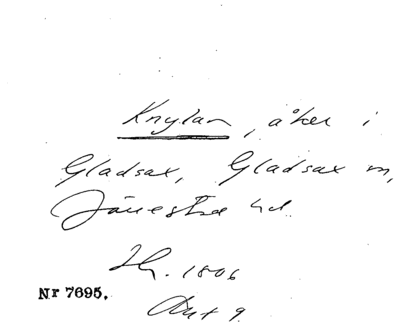 Knylan, åker i
Gladsax, Gladsax sn,
Järrestad hd.
Sk. 1806
Nr 7695.
Akt 9